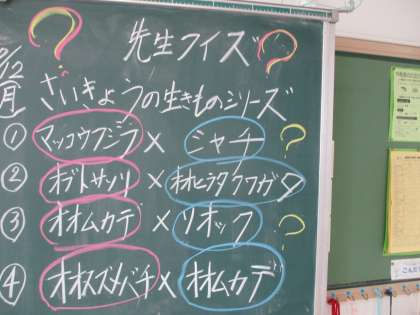 ? 先生クイズ ?
/12
月 ざいきょうの生きものシリーズ
① マッコウクジラ × シャチ ?
② オブトサソリ × オオヒラタクワガタ
③ オオムカデ × リオック ?
④ オオスズメバチ × オオムカデ